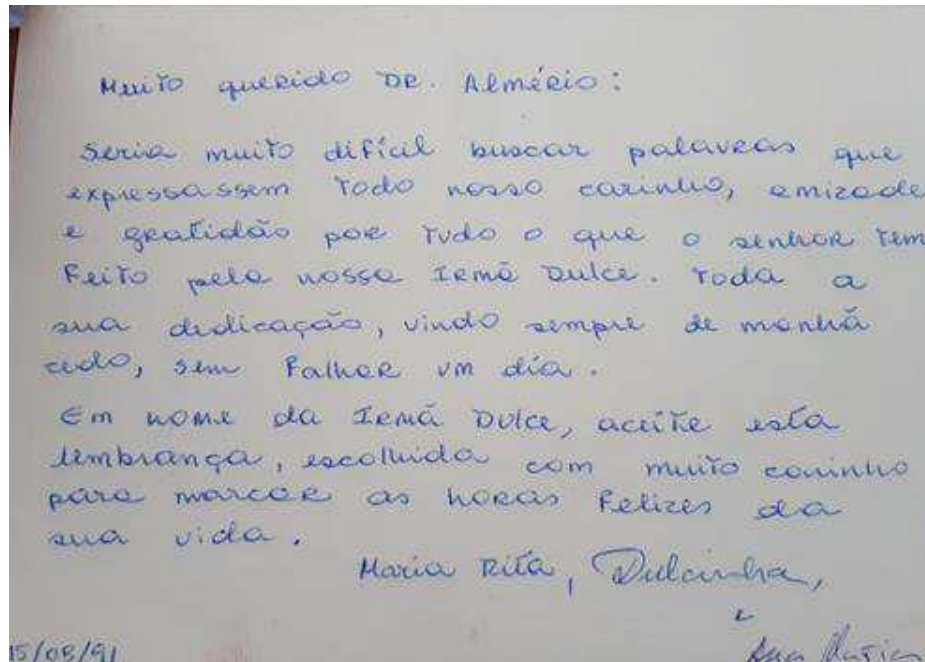 Muito querido DR. Almério:
Seria muito difícil buscar palavras que
expressassem todo nosso carinho, amizade
e gratidão por tudo o que o senhor tem
feito pela nossa Irmã Dulce. Toda a
sua dedicação, vindo sempre de manhã
cedo, sem falhar um dia.
Em nome da Irmã Dulce, aceite esta
lembrança, escolhida com muito carinho
para marcar as horas felizes da
sua vida.
Maria Rita, Dulcinha,
e
15/08/91 Ana Maria